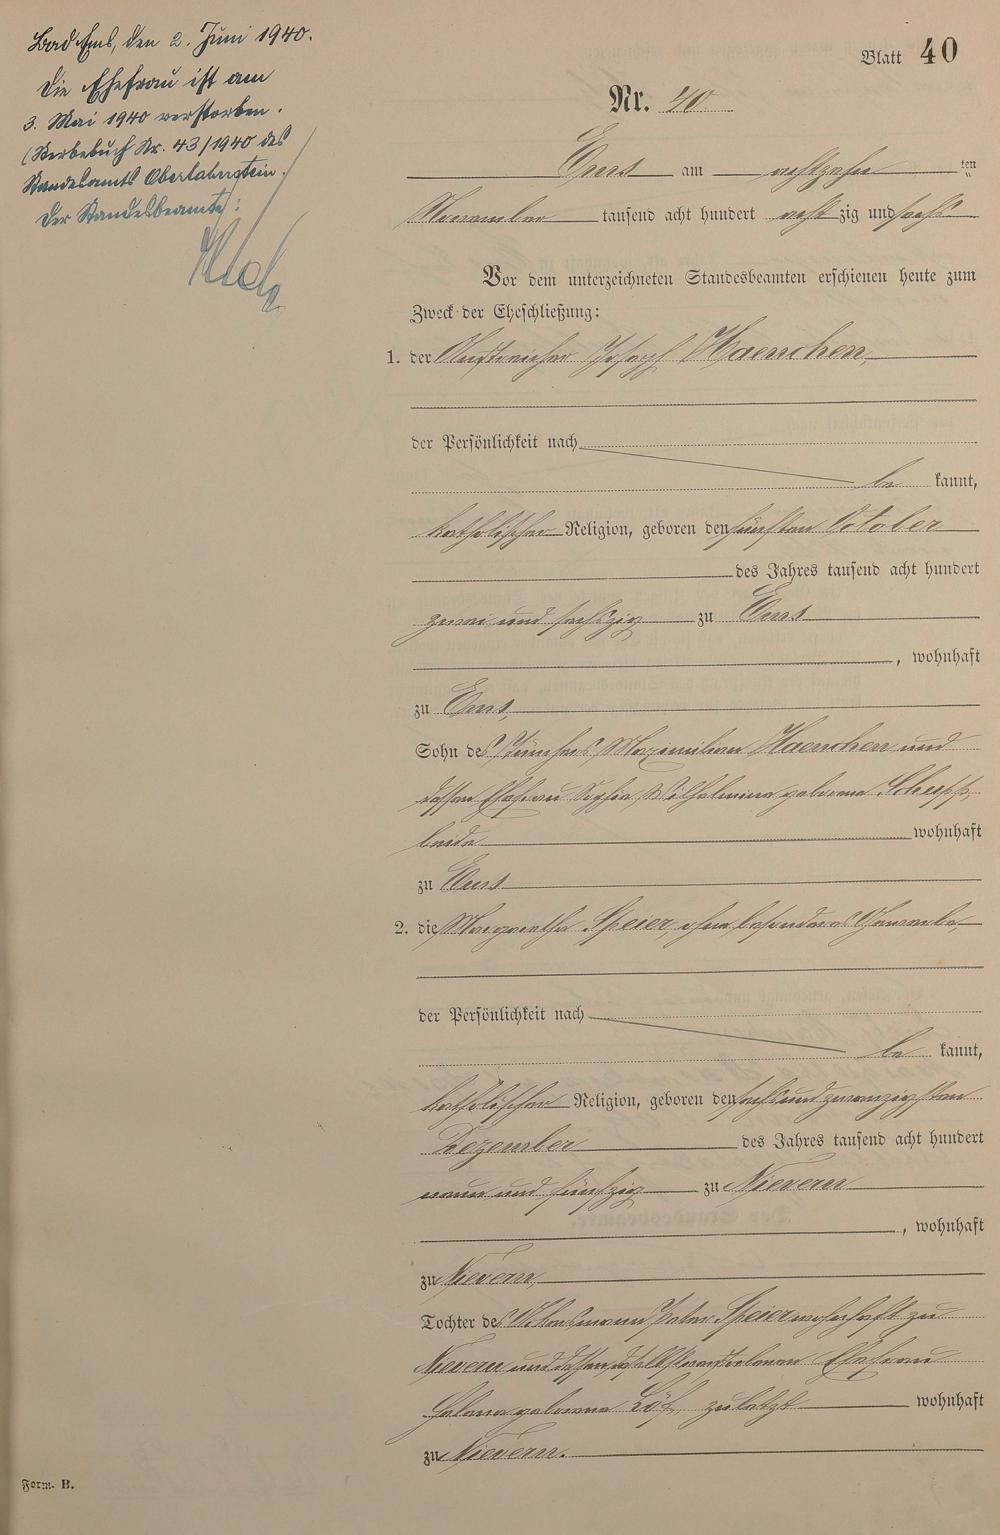 Bad Ems, den 2. Juni 1940.
Die Ehefrau ist am
3. Mai 1940 verstorben.
(Sterbebuch Nr. 43/1940 des
Standesamts Oberlahnstein.
Der Standesbeamte:
Blatt 40
Nr. 40
Ems am achtzehn ten
November tausend acht hundert acht zig und sechs
Vor dem unterzeichneten Standesbeamten erschienen heute zum
Zweck der Eheschließung:
1. der Anstreicher Joseph Haenchen,
der Persönlichkeit nach
be kannt,
katholischer Religion, geboren den fünften October
des Jahres tausend acht hundert
zwei und sechszig zu Ems
, wohnhaft
zu Ems,
Sohn des Tünchers Maximilian Haenchen und
dessen Ehefrau Sophia Wilhelmina geborene Schupp,
beide wohnhaft
zu Ems
2. die Margaretha Speier, ohne besonderes Gewerbe,
der Persönlichkeit nach
be kannt,
katholischer Religion, geboren den sechsundzwanzigsten
Dezember des Jahres tausend acht hundert
neun und fünfzig zu Nievern
, wohnhaft
zu Nievern,
Tochter des Ackersmann Peter Speier wohnhaft zu
Nievern und dessen daselbst verstorbenen Ehefrau
Helena geborene Löf, zuletzt wohnhaft
zu Nievern.
Form. B.